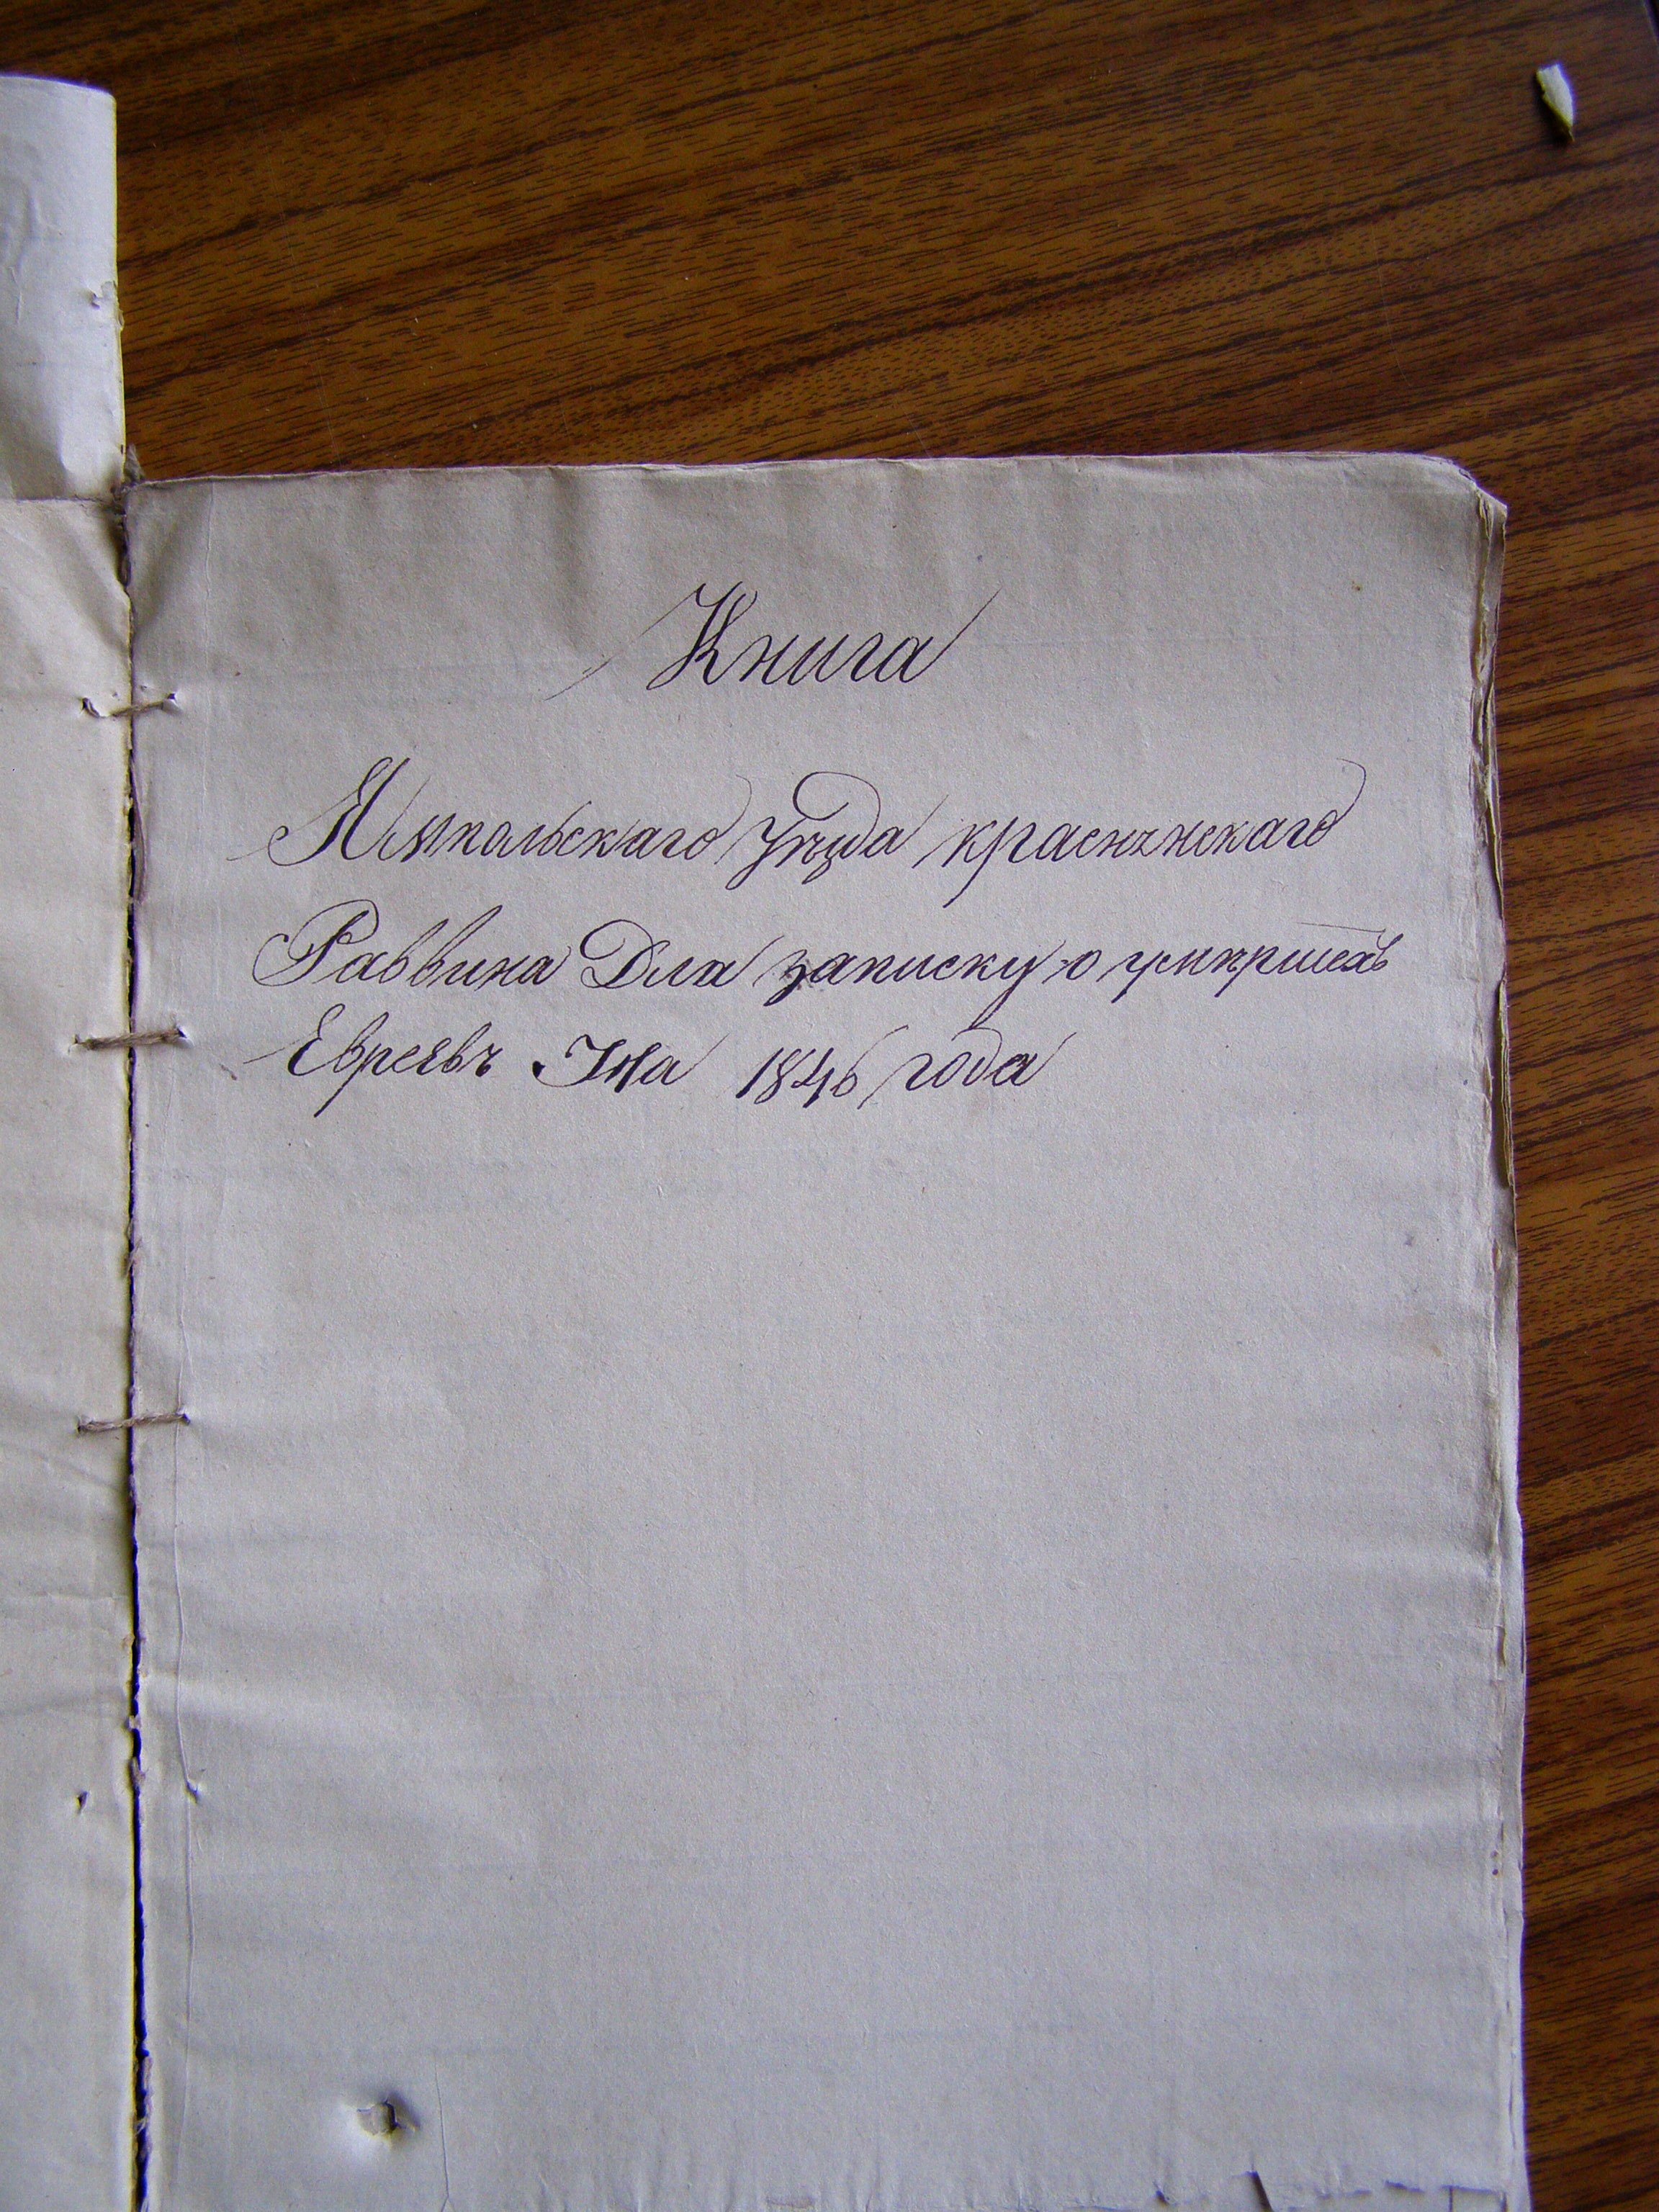 Книга
Ямпольскаго уѣзда краснянскаго
Раввина Для записку о умѣршихъ
Евреевъ На 1846 года